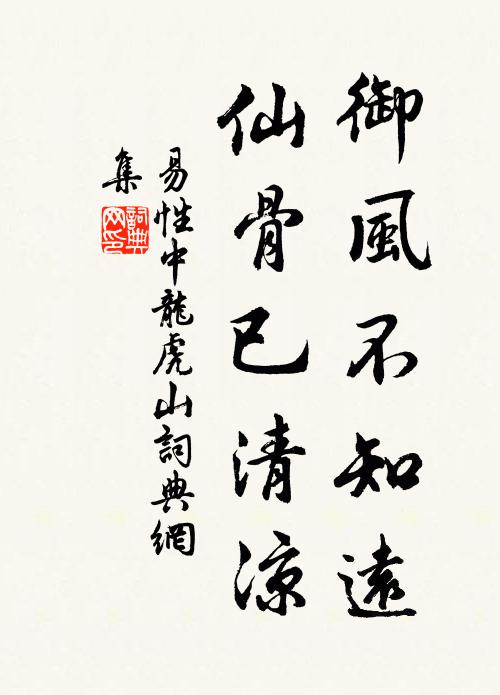 御風不知遠
仙骨已清涼
易性中龍虎山詞典網
集
詞典
网印